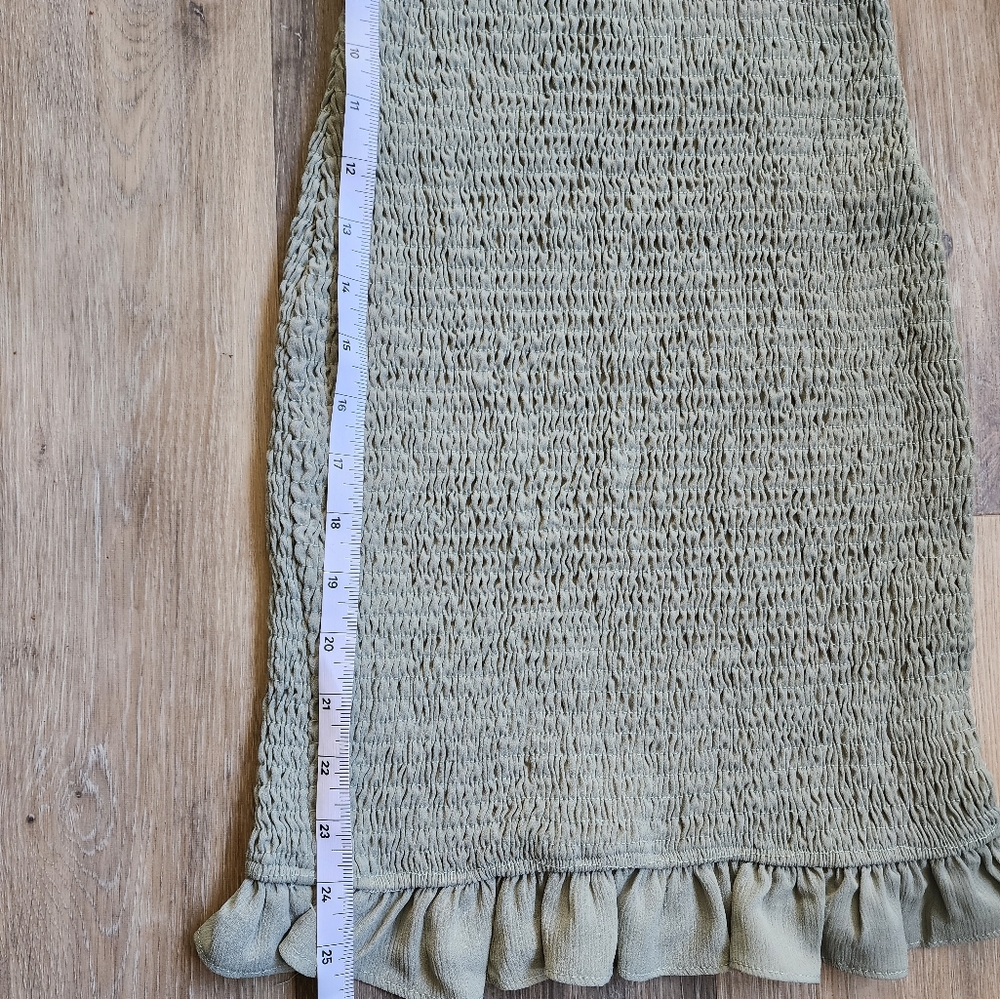 10
11
12
13
14
15
16
17
18
19
20
21
22
23
24
25